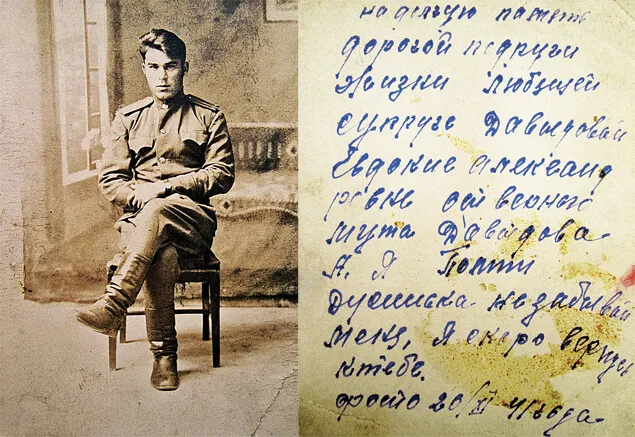 на долгую память
дорогой подруги
жизни любящей
супруге Давыдовой
Евдокие Александ
ровне от верного
мужа Давыдова
А. Я Помни
Дусинька незабывай
меня, Я скоро вернусь
ктебе.
фото 20/XI 41 года